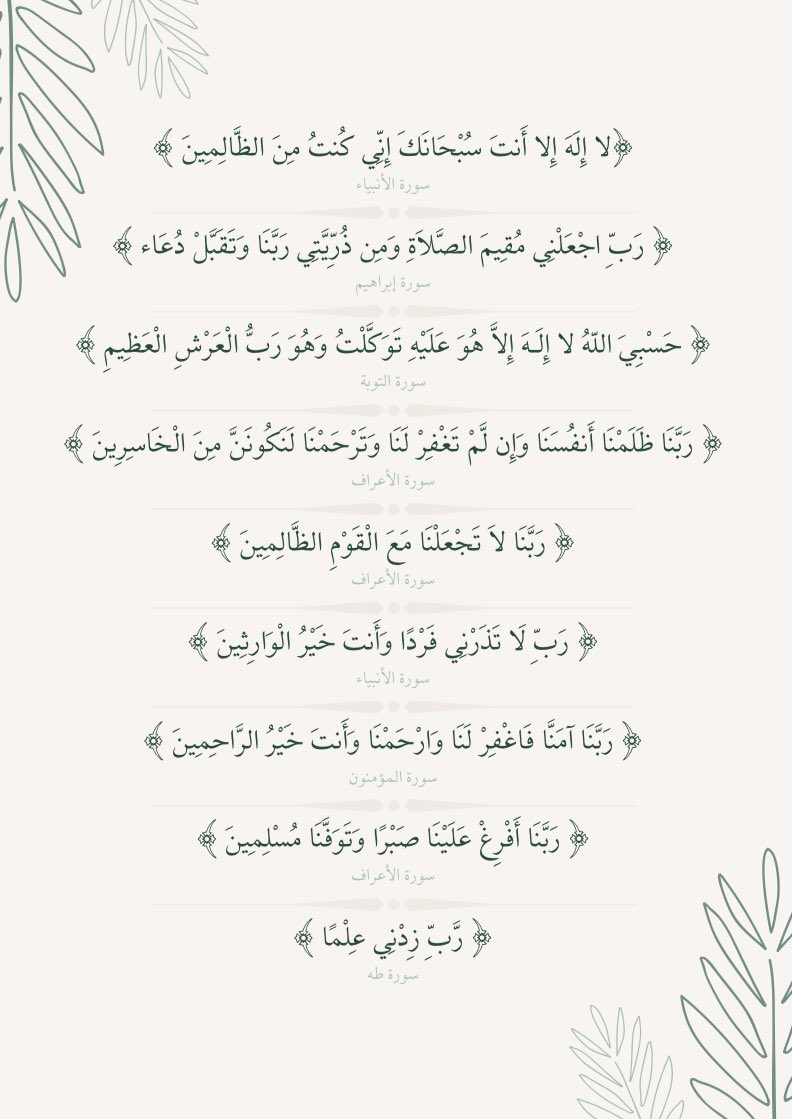 ﴿لا إِلَهَ إِلا أَنتَ سُبْحَانَكَ إِنِّي كُنتُ مِنَ الظَّالِمِينَ ﴾
سورة الأنبياء
﴿ رَبِّ اجْعَلْنِي مُقِيمَ الصَّلاَةِ وَمِن ذُرِّيَّتِي رَبَّنَا وَتَقَبَّلْ دُعَاء ﴾
سورة إبراهيم
﴿ حَسْبِيَ اللّهُ لا إِلَـهَ إِلاَّ هُوَ عَلَيْهِ تَوَكَّلْتُ وَهُوَ رَبُّ الْعَرْشِ الْعَظِيمِ ﴾
سورة التوبة
﴿ رَبَّنَا ظَلَمْنَا أَنفُسَنَا وَإِن لَّمْ تَغْفِرْ لَنَا وَتَرْحَمْنَا لَنَكُونَنَّ مِنَ الْخَاسِرِينَ ﴾
سورة الأعراف
﴿ رَبَّنَا لاَ تَجْعَلْنَا مَعَ الْقَوْمِ الظَّالِمِينَ ﴾
سورة الأعراف
﴿ رَبِّ لَا تَذَرْنِي فَرْدًا وَأَنتَ خَيْرُ الْوَارِثِينَ ﴾
سورة الأنبياء
﴿ رَبَّنَا آمَنَّا فَاغْفِرْ لَنَا وَارْحَمْنَا وَأَنتَ خَيْرُ الرَّاحِمِينَ ﴾
سورة المؤمنون
﴿ رَبَّنَا أَفْرِغْ عَلَيْنَا صَبْرًا وَتَوَفَّنَا مُسْلِمِينَ ﴾
سورة الأعراف
﴿ رَّبِّ زِدْنِي عِلْمًا ﴾
سورة طه